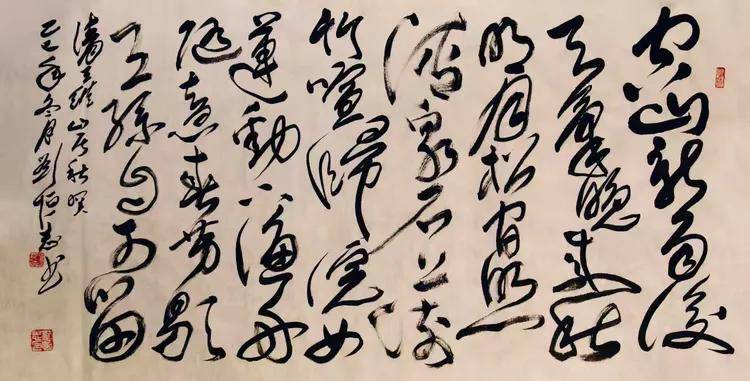 空山新雨後
天氣晚來秋
明月松間照
清泉石上流
竹喧歸浣女
蓮動下漁舟
随意春芳歇
王孫自可留
王維山居秋暝
年冬月劉书